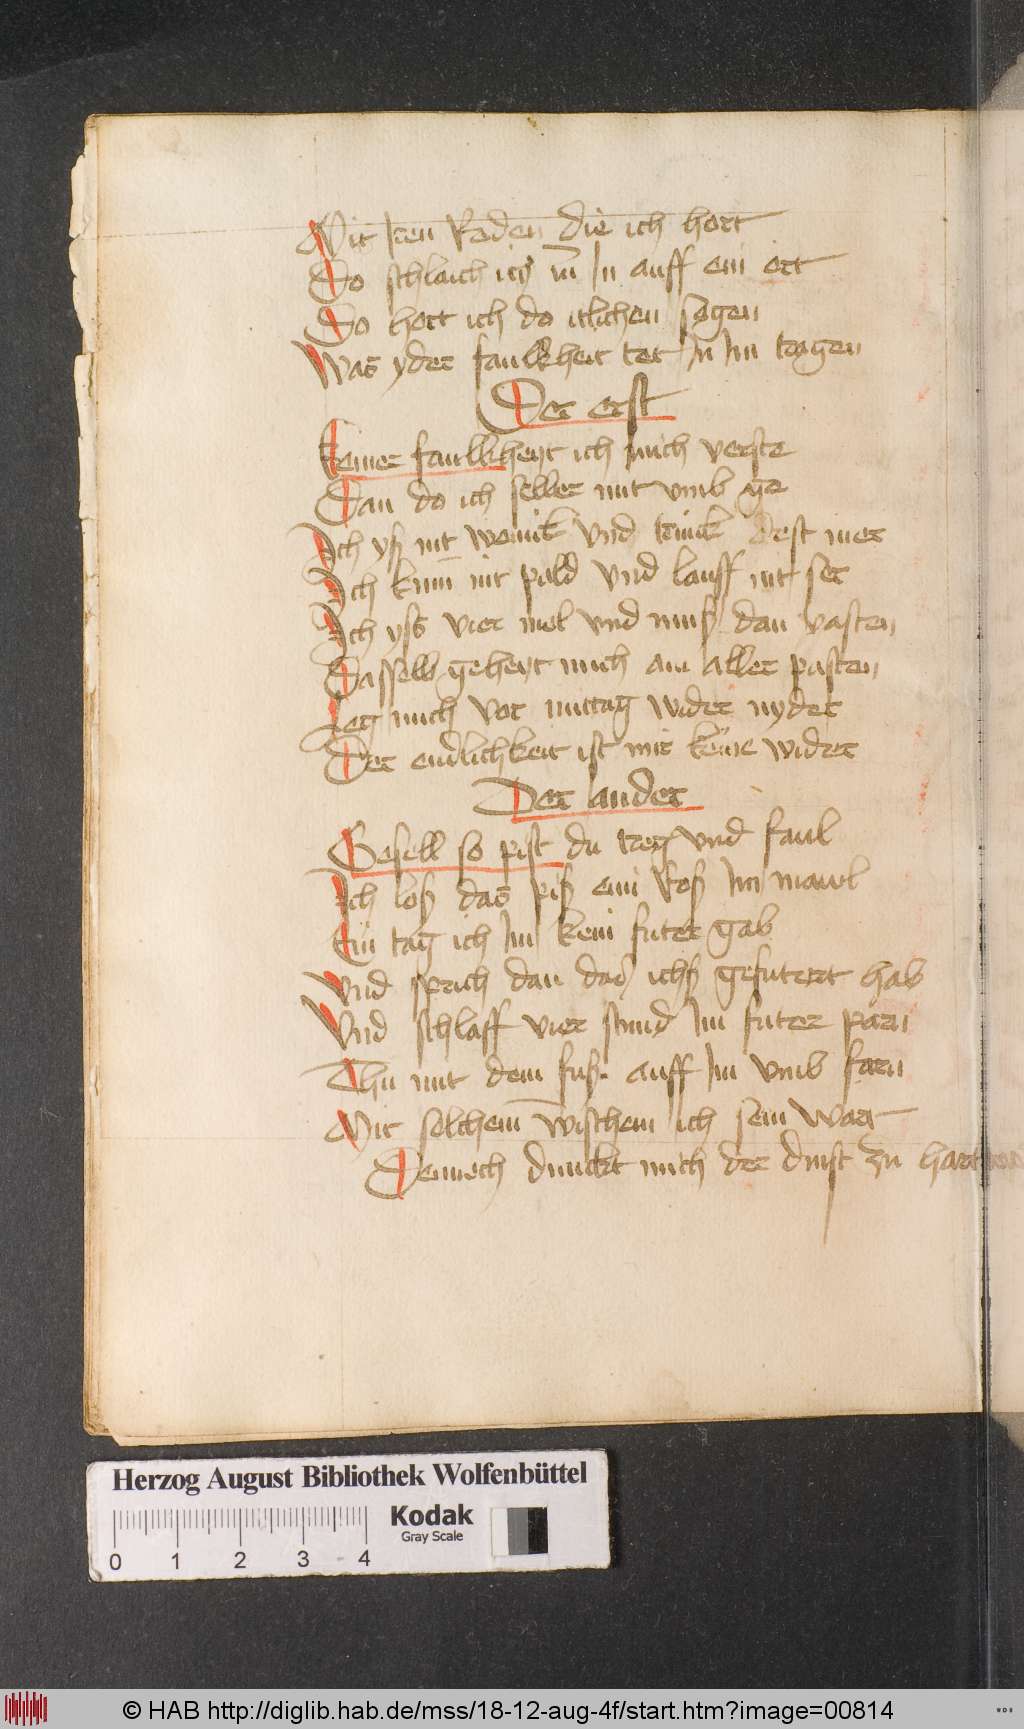 Mit Iren Reden die ich hort
Do schlaich ich In auff ein ort
Do hort ich do itlichen sagen
Was yder faulkheit tet In Im tragen
Der erst
Keiner faulkheyt ich mich verste
Dan do ich selber mit vmb ge
Ich yß nit wenik vnd trinck dest mer
Ich kum nit pald vnd lauff nit ser
Ich yss vier mol vnd muß dan vasten
Dasselb geheyt mich am aller pasten
Leg mich vor mittag wider nyder
Der endlichkeit ist mir keine wider
Der ander
Gesell so pist du treg vnd faul
Ich loß das piß eim Roß Im mawl
Ein tag ich Im kein futer gab
Vnd sprich dan das ichß gefutert hab
Vnd schlaff vier stund Im futer parn
Thu mit dem fuß auff Im vmb farn
Mit solchem wischem ich sein wart
Dennoch dunckt mich der dinst zu hart
Herzog August Bibliothek Wolfenbüttel
Kodak
Gray Scale
0 1 2 3 4
© HAB http://diglib.hab.de/mss/18-12-aug-4f/start.htm?image=00814